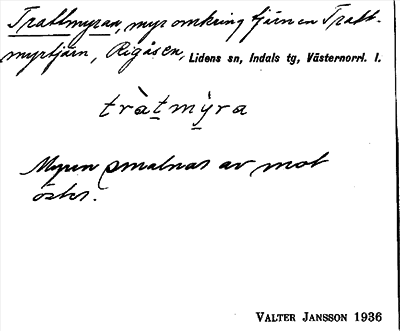 Trattmyran, myr omkring tjärnen Tratt-
myrtjärn, Rigåsen, Lidens sn, Indals tg, Västernorrl. l.
tràt̲mỳ̲ra
Myren smalnar av mot
öster.
VALTER JANSSON 1936